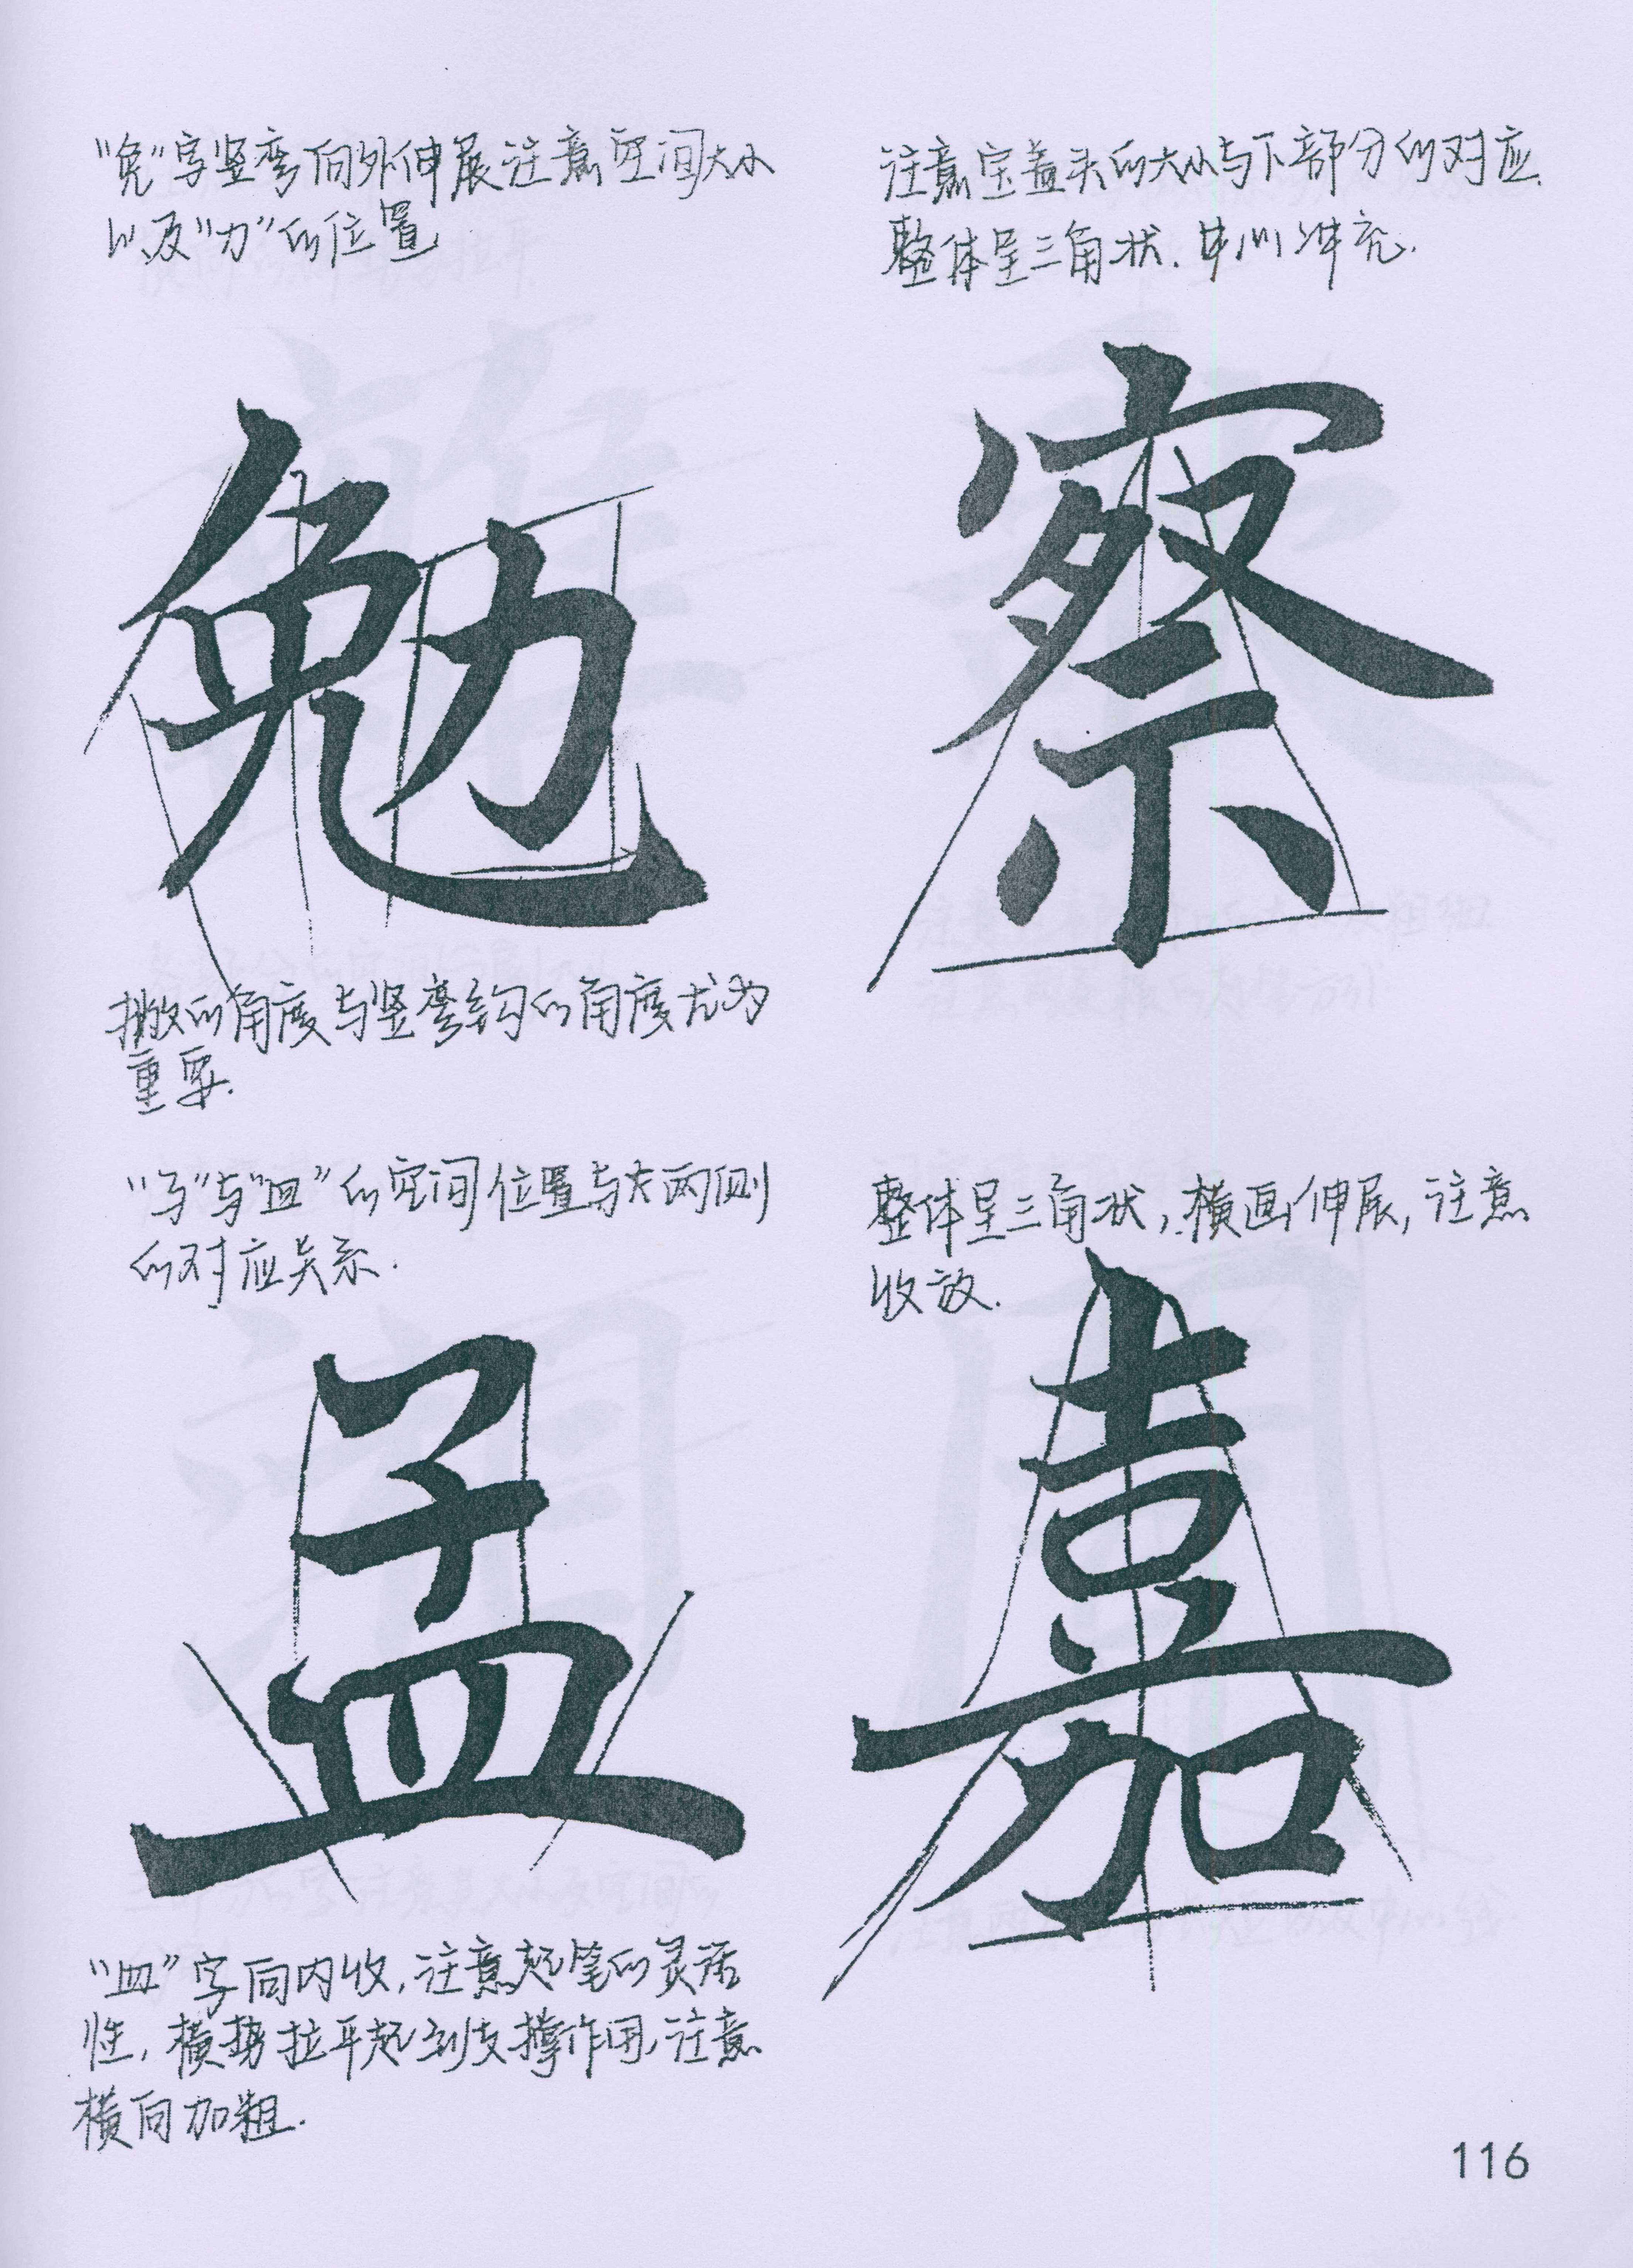 “免”字竖弯向外伸展注意空间大小
以及“力”的位置
勉
撇的角度与竖弯钩的角度尤为
重要.
注意宝盖头的大小与下部分的对应.
整体呈三角状.中心冲充.
察
“子”与“皿”的空间位置与大两侧
的对应关系.
孟
“皿”字向内收,注意起笔的灵活
性,横势拉平起到支撑作用,注意
横向加粗.
整体呈三角状,横画伸展,注意
收放.
嘉
116